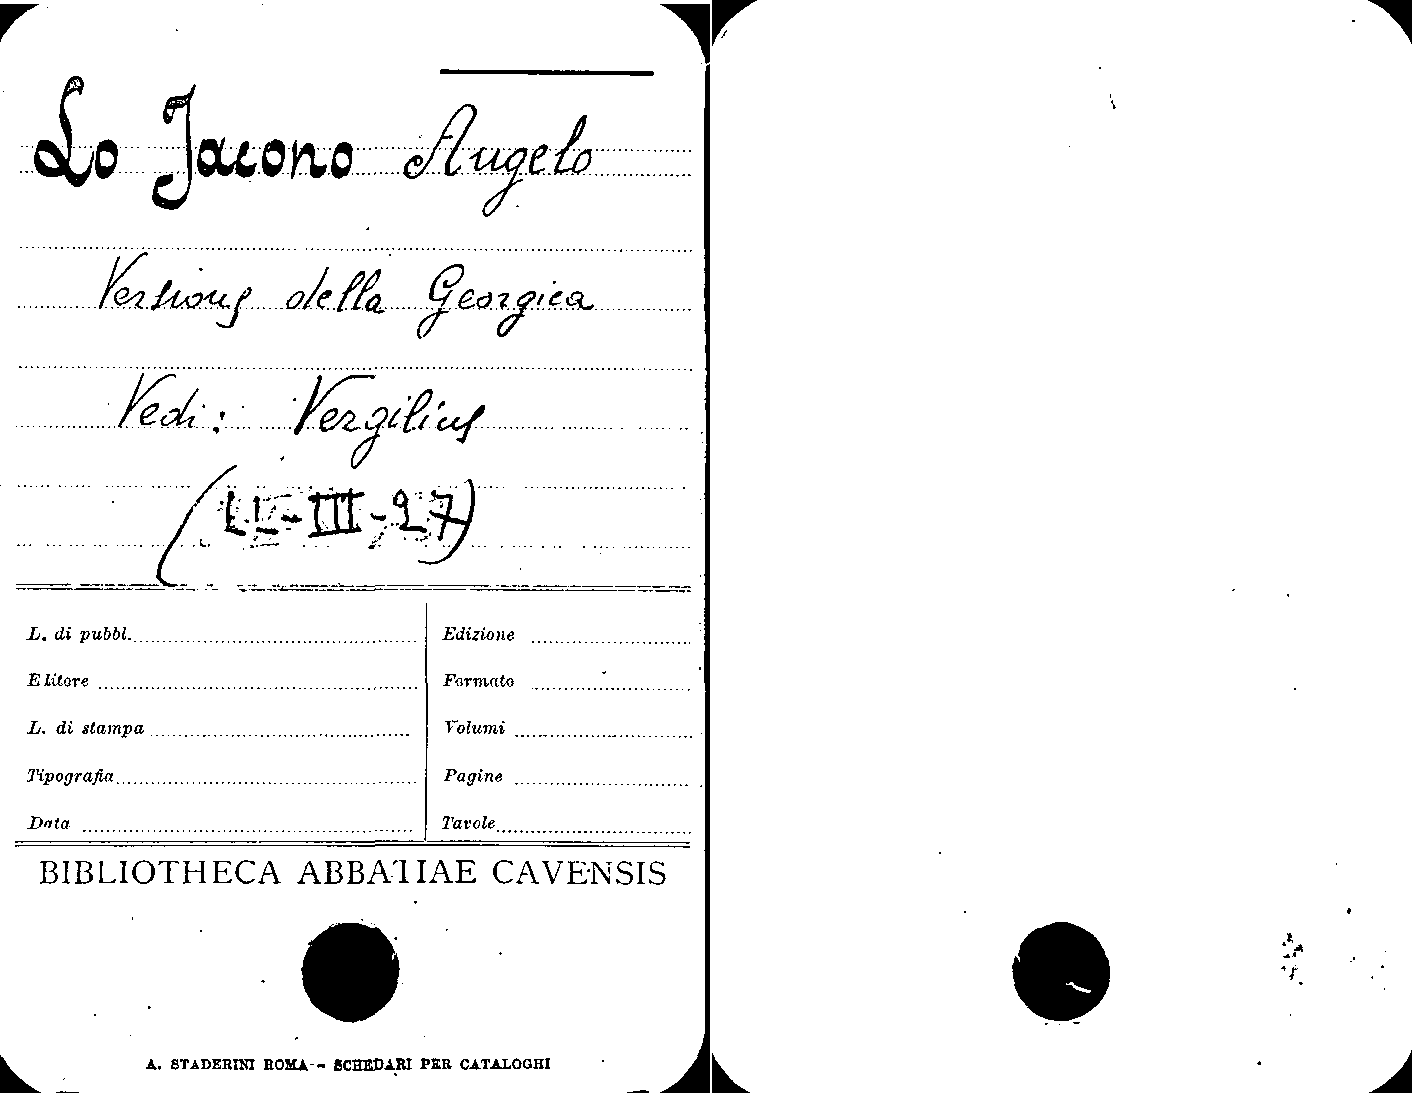 Lo Jacono Angelo
Versione della Georgica
Vedi: Vergilius
(LL-III-27)
L. di pubbl.
Editore
L. di stampa
Tipografia
Data
Edizione
Formato
Volumi
Pagine
Tavole
BIBLIOTHECA ABBATIAE CAVENSIS
A. STADERINI ROMA -- SCHEDARI PER CATALOGHI